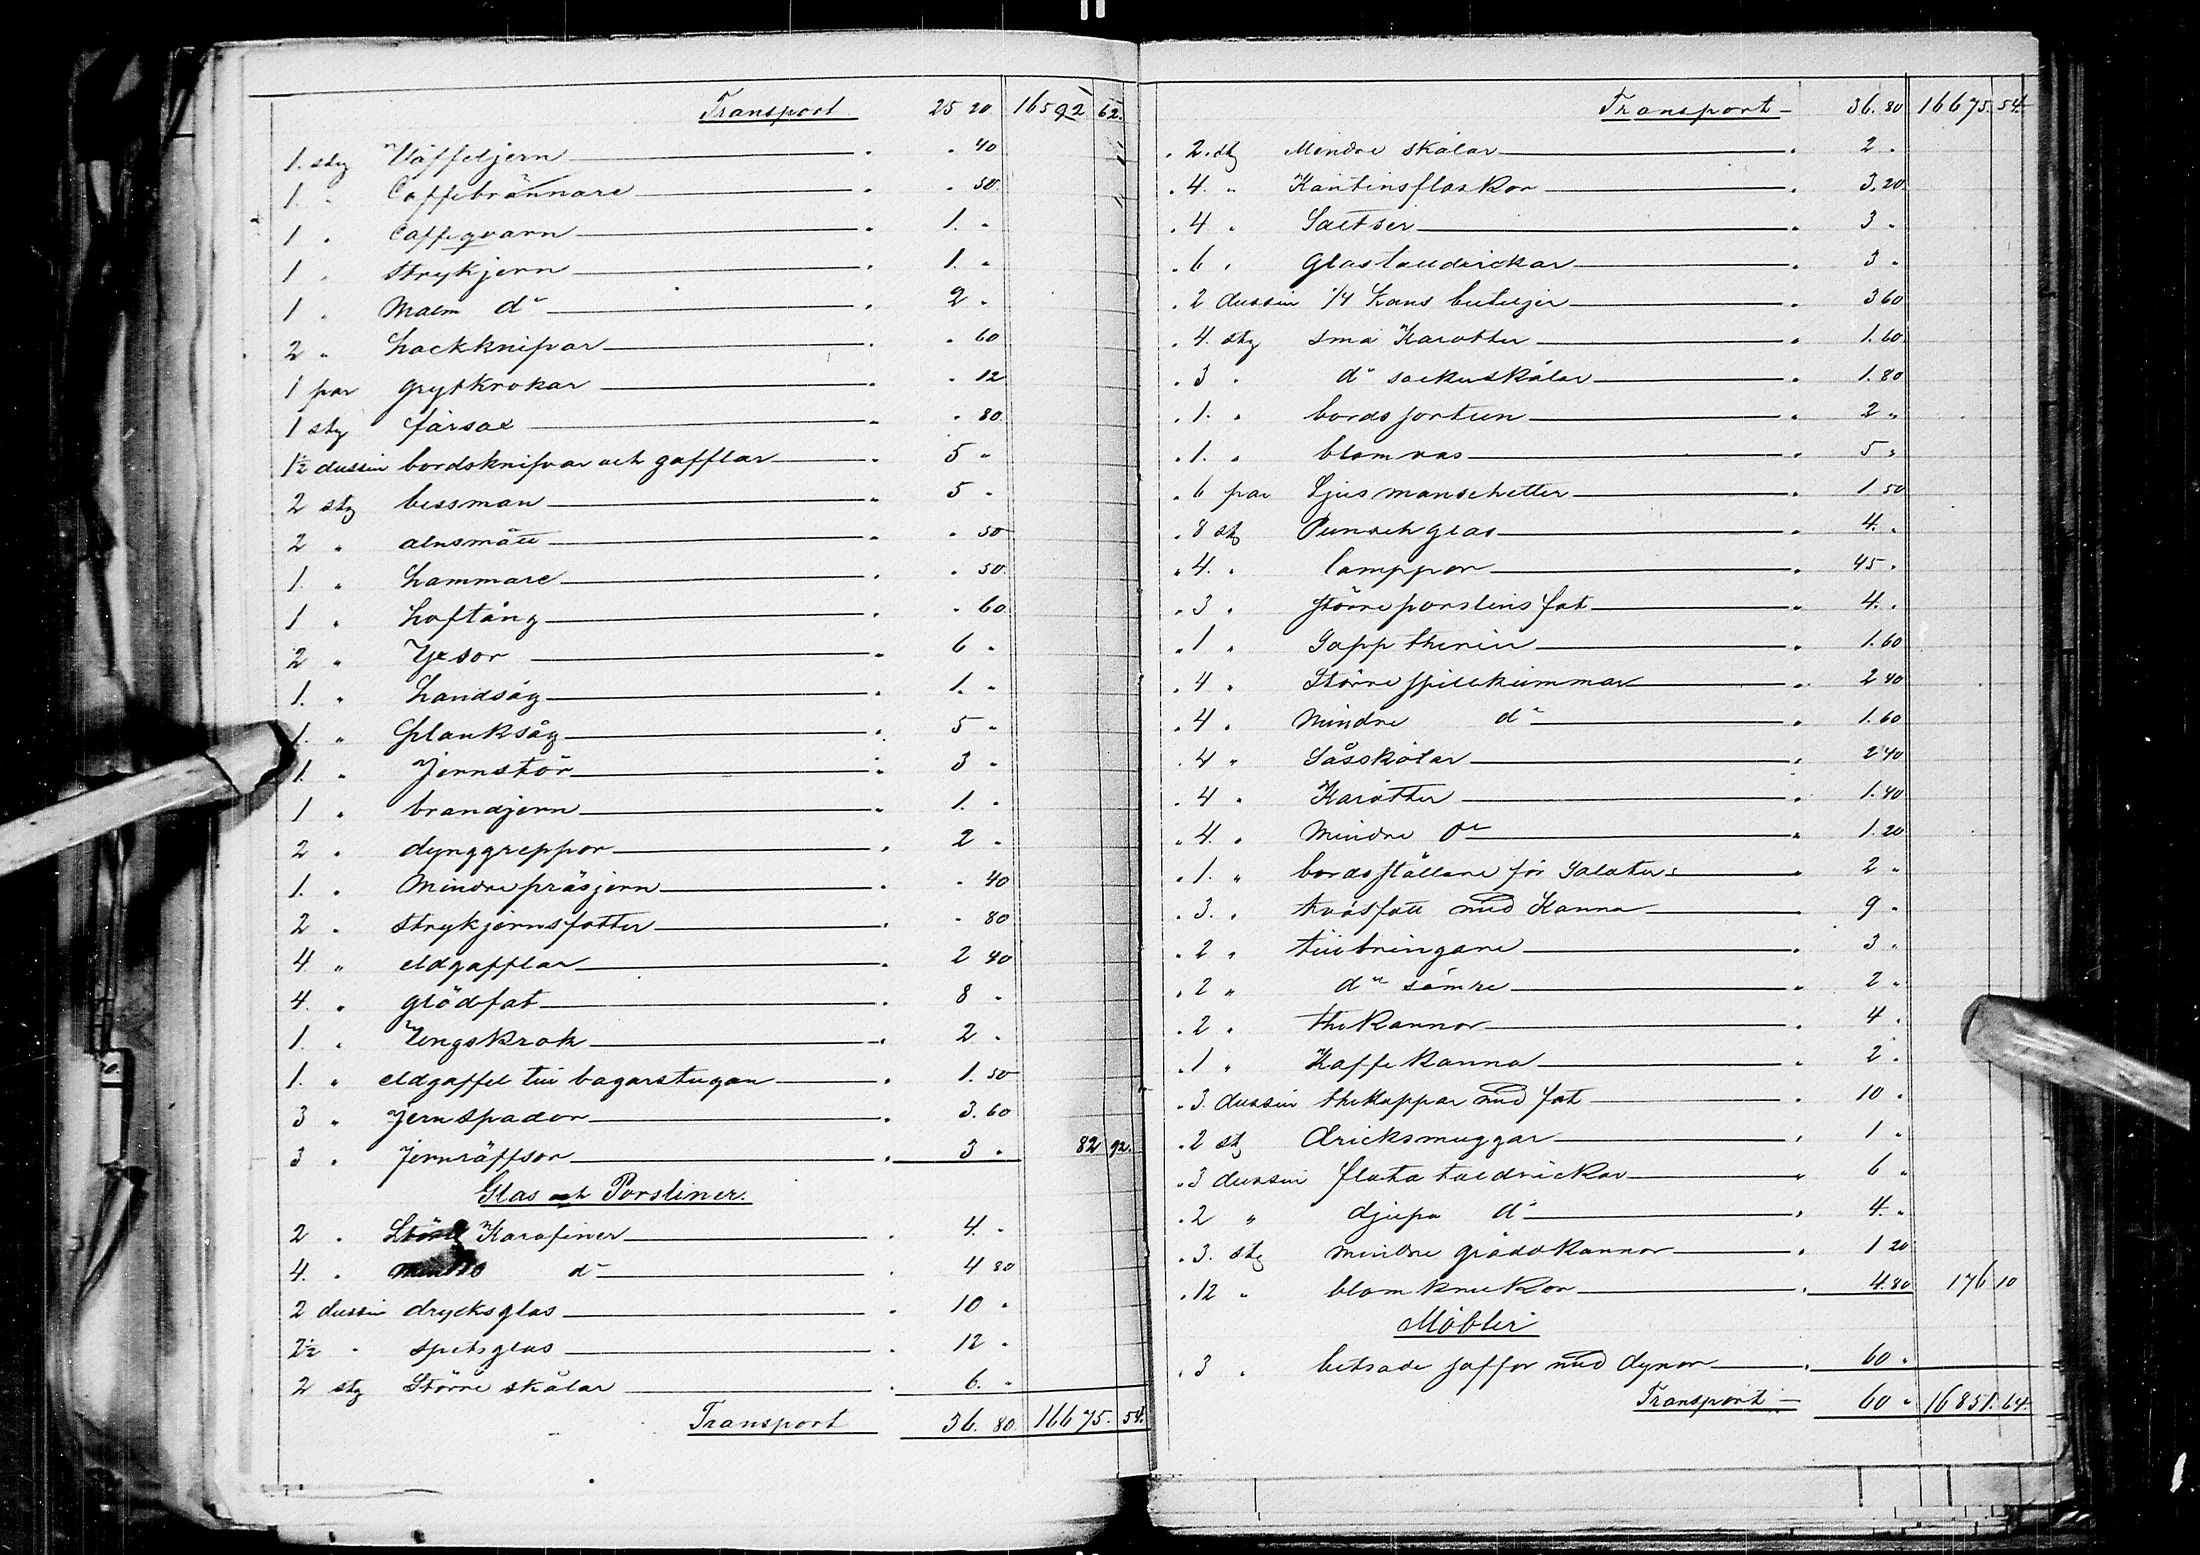 Transport 25 20 16592 62.
1. stg Våffeljern " " 40
1. " Caffebrännare " " 50.
1 " Caffeqvarn " 1. "
1 " Strykjern " 1. "
1 " Malm do " 2 "
2 " hackknifvar " " 60
1 par grytkrokar " " 12
1 stg fårsax " " 80.
1½ dussin bordsknifvar och gafflar " 5 "
2 stg bessman " 5 "
2 " alnsmått " " 50
1. " hammare " " 50.
1 " hoftång " " 60.
2 " Yxor " 6 "
1. " handsåg " 1. "
1. " Planksåg " 5 "
1. " Jernstör " 3 "
1 " brandjern " 1. "
2 " dynggreppor " 2 "
1. " Mindre präsjern " " 40
2 " Strykjernsfötter " " 80
4 " eldgafflar " 2 40
4. " glödfat " 8 "
1. " Ungskrok " 2 "
1. " eldgaffel till bagarstugan " 1. 50
3 " Jernspador " 3. 60
3 " Jernräffsor " 3 " 82 92.
Glas och Porsliner.
2 " Större Karafiner " 4. "
4. " Mindre do " 4 80
2 dussin drycksglas " 10 "
2½ " spetsglas " 12 "
2 stg Större skålar " 6. "
Transport 36. 80. 16675. 54.
Transport 36. 80 16675. 54.
" 2. stg Mindre skålar " 2 "
" 4. " Kantinsflaskor " 3. 20.
" 4 " Saltser " 3 "
" 6 " Glastalldrickar " 3 "
" 2 dussin 1/4 kans buteljer " 3 60
" 4. stg små Karotter " 1. 60
" 3 " do sockerskålar " 1. 80
" 1. " bords " 2 "
" 1. " blomvas " 5 "
" 6 par Ljusmanschetter " 1 50
" 8 stg Punschglas " 4. "
" 4. " lamppor " 45 "
" 3 " större porslins fat " 4. "
" 1 " Sopp therin " 1. 60
" 4 " Större spillkummar " 2 40
" 4 " Mindre do " 1. 60
" 4 " Såsskålar " 2 40
" 4 " Karotter " 1. 40
" 4. " Mindre do " 1. 20
" 1. " bordsställare för Salater " 2 "
" 3. " tvåsfatt med Kanna " 9 "
" 2 " tillbringare " 3 "
" 2 " do sämre " 2 "
" 2 " thekannor " 4 "
" 1 " Kaffekanna " 2 "
" 3. dussin thekoppar med fat " 10 "
" 2 stg dricksmuggar " 1 "
" 3 dussin flata talldrickar " 6 "
" 2 " djupa do " 4. "
" 3. stg mindre gräddkannor " 1 20
" 12 " blomkrukor " 4. 80 176 10
Möbler
" 3 " betsade soffor med dynor " 60 "
Transport 60 " 16851. 64.